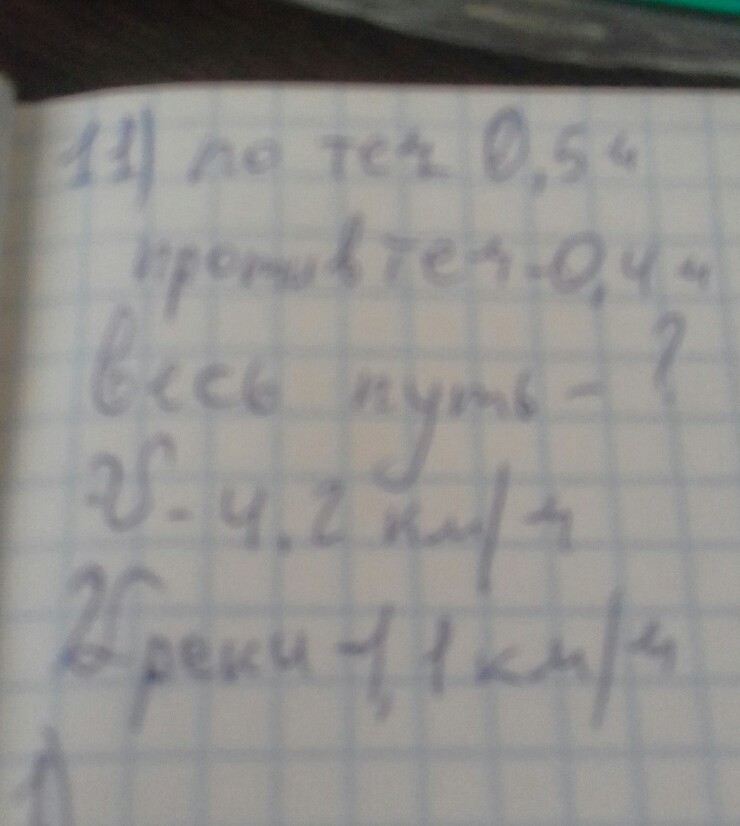 11) по теч 0,5 ч
против теч - 0,4 ч
весь путь - ?
V - 4,2 км/ч
V реки - 1,1 км/ч
1)